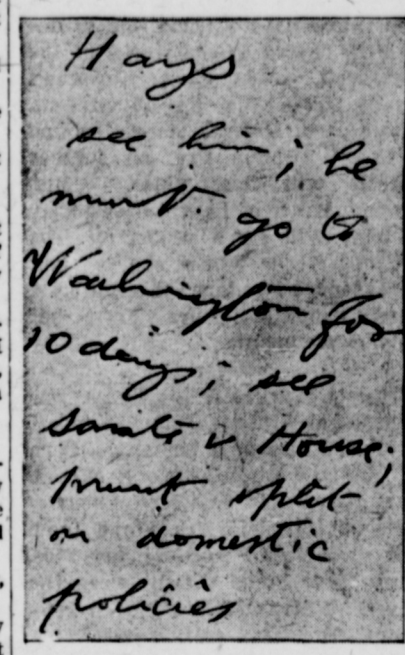 Hays
see him; he
must go to
Washington for
10 days; see
Senate & House;
must split
on domestic
policies